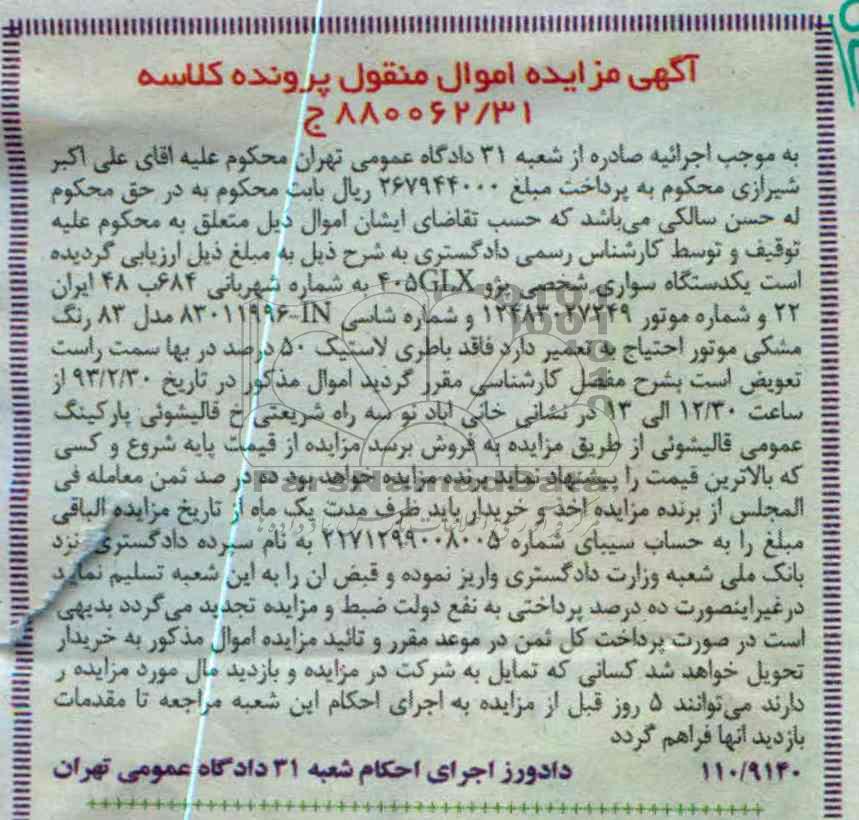 آگهی مزایده اموال منقول پرونده کلاسه
۸۸۰۰۶۲/۳۱ ج
به موجب اجرائیه صادره از شعبه ۳۱ دادگاه عمومی تهران محکوم علیه اقای علی اکبر
شیرازی محکوم به پرداخت مبلغ ۲۶۷۹۴۴۰۰۰ ریال بابت محکوم به در حق محکوم
له حسن سالکی می‌باشد که حسب تقاضای ایشان اموال ذیل متعلق به محکوم علیه
توقیف و توسط کارشناس رسمی دادگستری به شرح ذیل به مبلغ ذیل ارزیابی گردیده
است یکدستگاه سواری شخصی پژو ۴۰۵GLX به شماره شهربانی ۶۸۴ب ۴۸ ایران
۲۲ و شماره موتور ۱۲۴۸۳۰۲۷۲۴۹ و شماره شاسی IN-۸۳۰۱۱۹۹۶ مدل ۸۳ رنگ
مشکی موتور احتیاج به تعمیر دارد فاقد باطری لاستیک ۵۰ درصد در بها سمت راست
تعویض است بشرح مفصل کارشناسی مقرر گردید اموال مذکور در تاریخ ۹۳/۲/۳۰ از
ساعت ۱۲/۳۰ الی ۱۳ در نشانی خانی اباد نو سه راه شریعتی خ قالیشوئی پارکینگ
عمومی قالیشوئی از طریق مزایده به فروش برسد مزایده از قیمت پایه شروع و کسی
که بالاترین قیمت را پیشنهاد نماید برنده مزایده خواهد بود ده در صد ثمن معامله فی
المجلس از برنده مزایده اخذ و خریدار باید ظرف مدت یک ماه از تاریخ مزایده الباقی
مبلغ را به حساب سیبای شماره ۲۱۷۱۲۹۹۰۰۸۰۰۵ به نام سپرده دادگستری نزد
بانک ملی شعبه وزارت دادگستری واریز نموده و قبض ان را به این شعبه تسلیم نماید
درغیراینصورت ده درصد پرداختی به نفع دولت ضبط و مزایده تجدید می‌گردد بدیهی
است در صورت پرداخت کل ثمن در موعد مقرر و تائید مزایده اموال مذکور به خریدار
تحویل خواهد شد کسانی که تمایل به شرکت در مزایده و بازدید مال مورد مزایده ر
دارند می‌توانند ۵ روز قبل از مزایده به اجرای احکام این شعبه مراجعه تا مقدمات
بازدید انها فراهم گردد
۱۱۰/۹۱۴۰ دادورز اجرای احکام شعبه ۳۱ دادگاه عمومی تهران
ParsNamadData